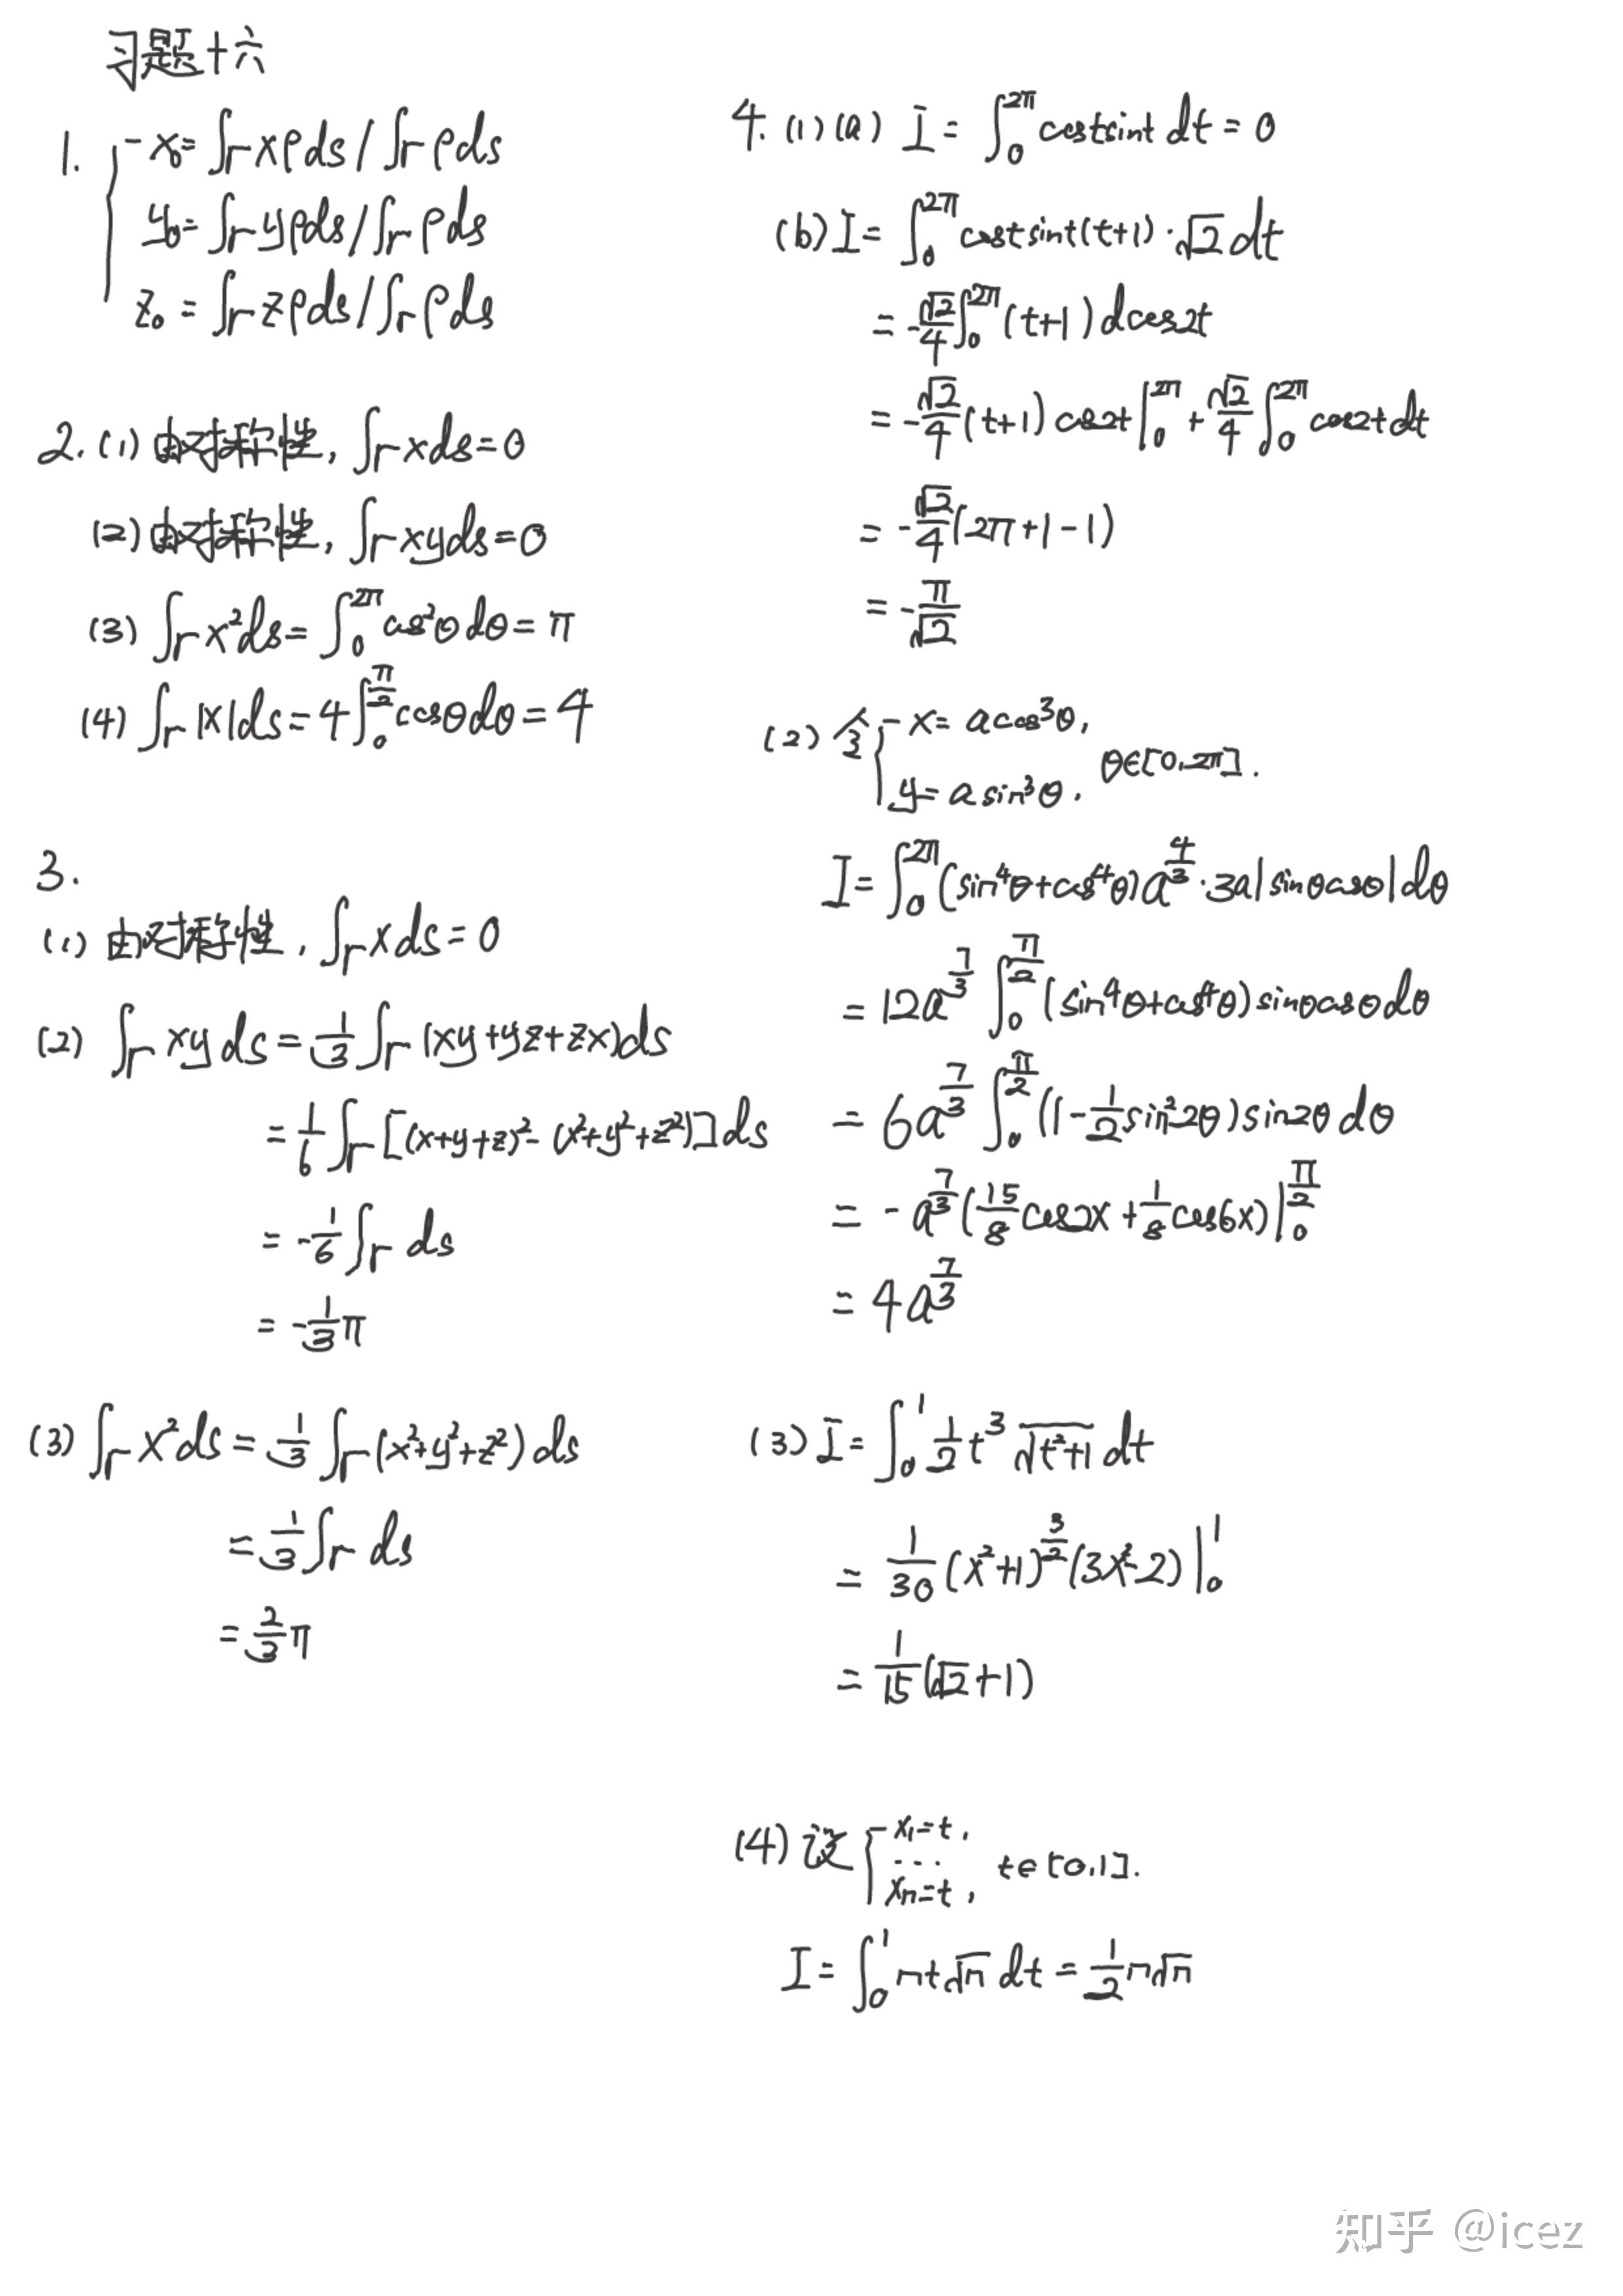 习题十六
1. { x₀ = ∫_Γ xρds / ∫_Γ ρds
y₀ = ∫_Γ yρds / ∫_Γ ρds
z₀ = ∫_Γ zρds / ∫_Γ ρds
2. (1) 由对称性, ∫_Γ xds = 0
(2) 由对称性, ∫_Γ xyds = 0
(3) ∫_Γ x²ds = ∫₀^{2π} cos²θdθ = π
(4) ∫_Γ |x|ds = 4∫₀^{π/2} cosθdθ = 4
3.
(1) 由对称性, ∫_Γ xds = 0
(2) ∫_Γ xyds = 1/3 ∫_Γ (xy+yz+zx)ds
= 1/6 ∫_Γ [(x+y+z)² - (x²+y²+z²)]ds
= -1/6 ∫_Γ ds
= -1/3 π
(3) ∫_Γ x²ds = 1/3 ∫_Γ (x²+y²+z²)ds
= 1/3 ∫_Γ ds
= 2/3 π
4. (1) (a) I = ∫₀^{2π} costsint dt = 0
(b) I = ∫₀^{2π} costsint(t+1)·√2 dt
= -√2/4 ∫₀^{2π} (t+1)dcos2t
= -√2/4 (t+1)cos2t |₀^{2π} + √2/4 ∫₀^{2π} cos2tdt
= -√2/4 (2π+1-1)
= -π/√2
(2) 令 { x = acos³θ,
y = asin³θ, θ∈[0,2π].
I = ∫₀^{2π} (sin⁴θ+cos⁴θ)a^{4/3}·3a|sinθcosθ|dθ
= 12a^{7/3} ∫₀^{π/2} (sin⁴θ+cos⁴θ)sinθcosθdθ
= 6a^{7/3} ∫₀^{π/2} (1-1/2 sin²2θ)sin2θdθ
= -a^{7/3} (15/8 cos2x + 1/8 cos6x) |₀^{π/2}
= 4a^{7/3}
(3) I = ∫₀¹ 1/2 t³ √(t²+1) dt
= 1/30 (x²+1)^{3/2} (3x²-2) |₀¹
= 1/15 (√2+1)
(4) 设 { x₁=t,
...
xₙ=t, t∈[0,1].
I = ∫₀¹ nt√n dt = 1/2 n√n
知乎 @icez